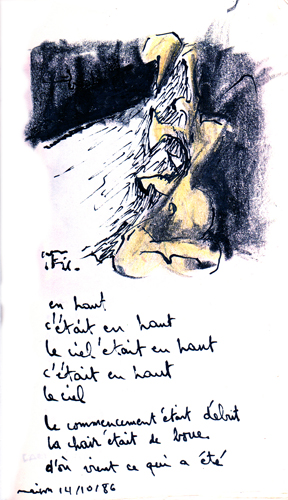 en haut
c'était en haut
le ciel c'était en haut
c'était en haut
le ciel
le commencement était début
la chair était de boue
d'où vient ce qui a été
14/10/86